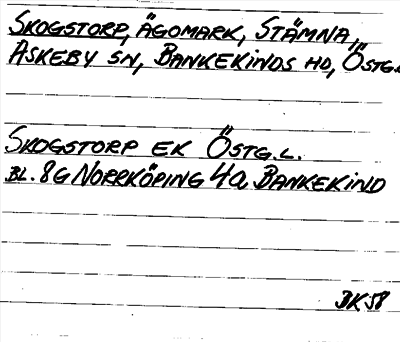 SKOGSTORP, ÄGOMARK, STÄMNA,
ASKEBY SN, BANKEKINDS HD, ÖSTG.
SKOGSTORP EK ÖSTG.L.
BL. 8G NORRKÖPING 4a, BANKEKIND
BK58